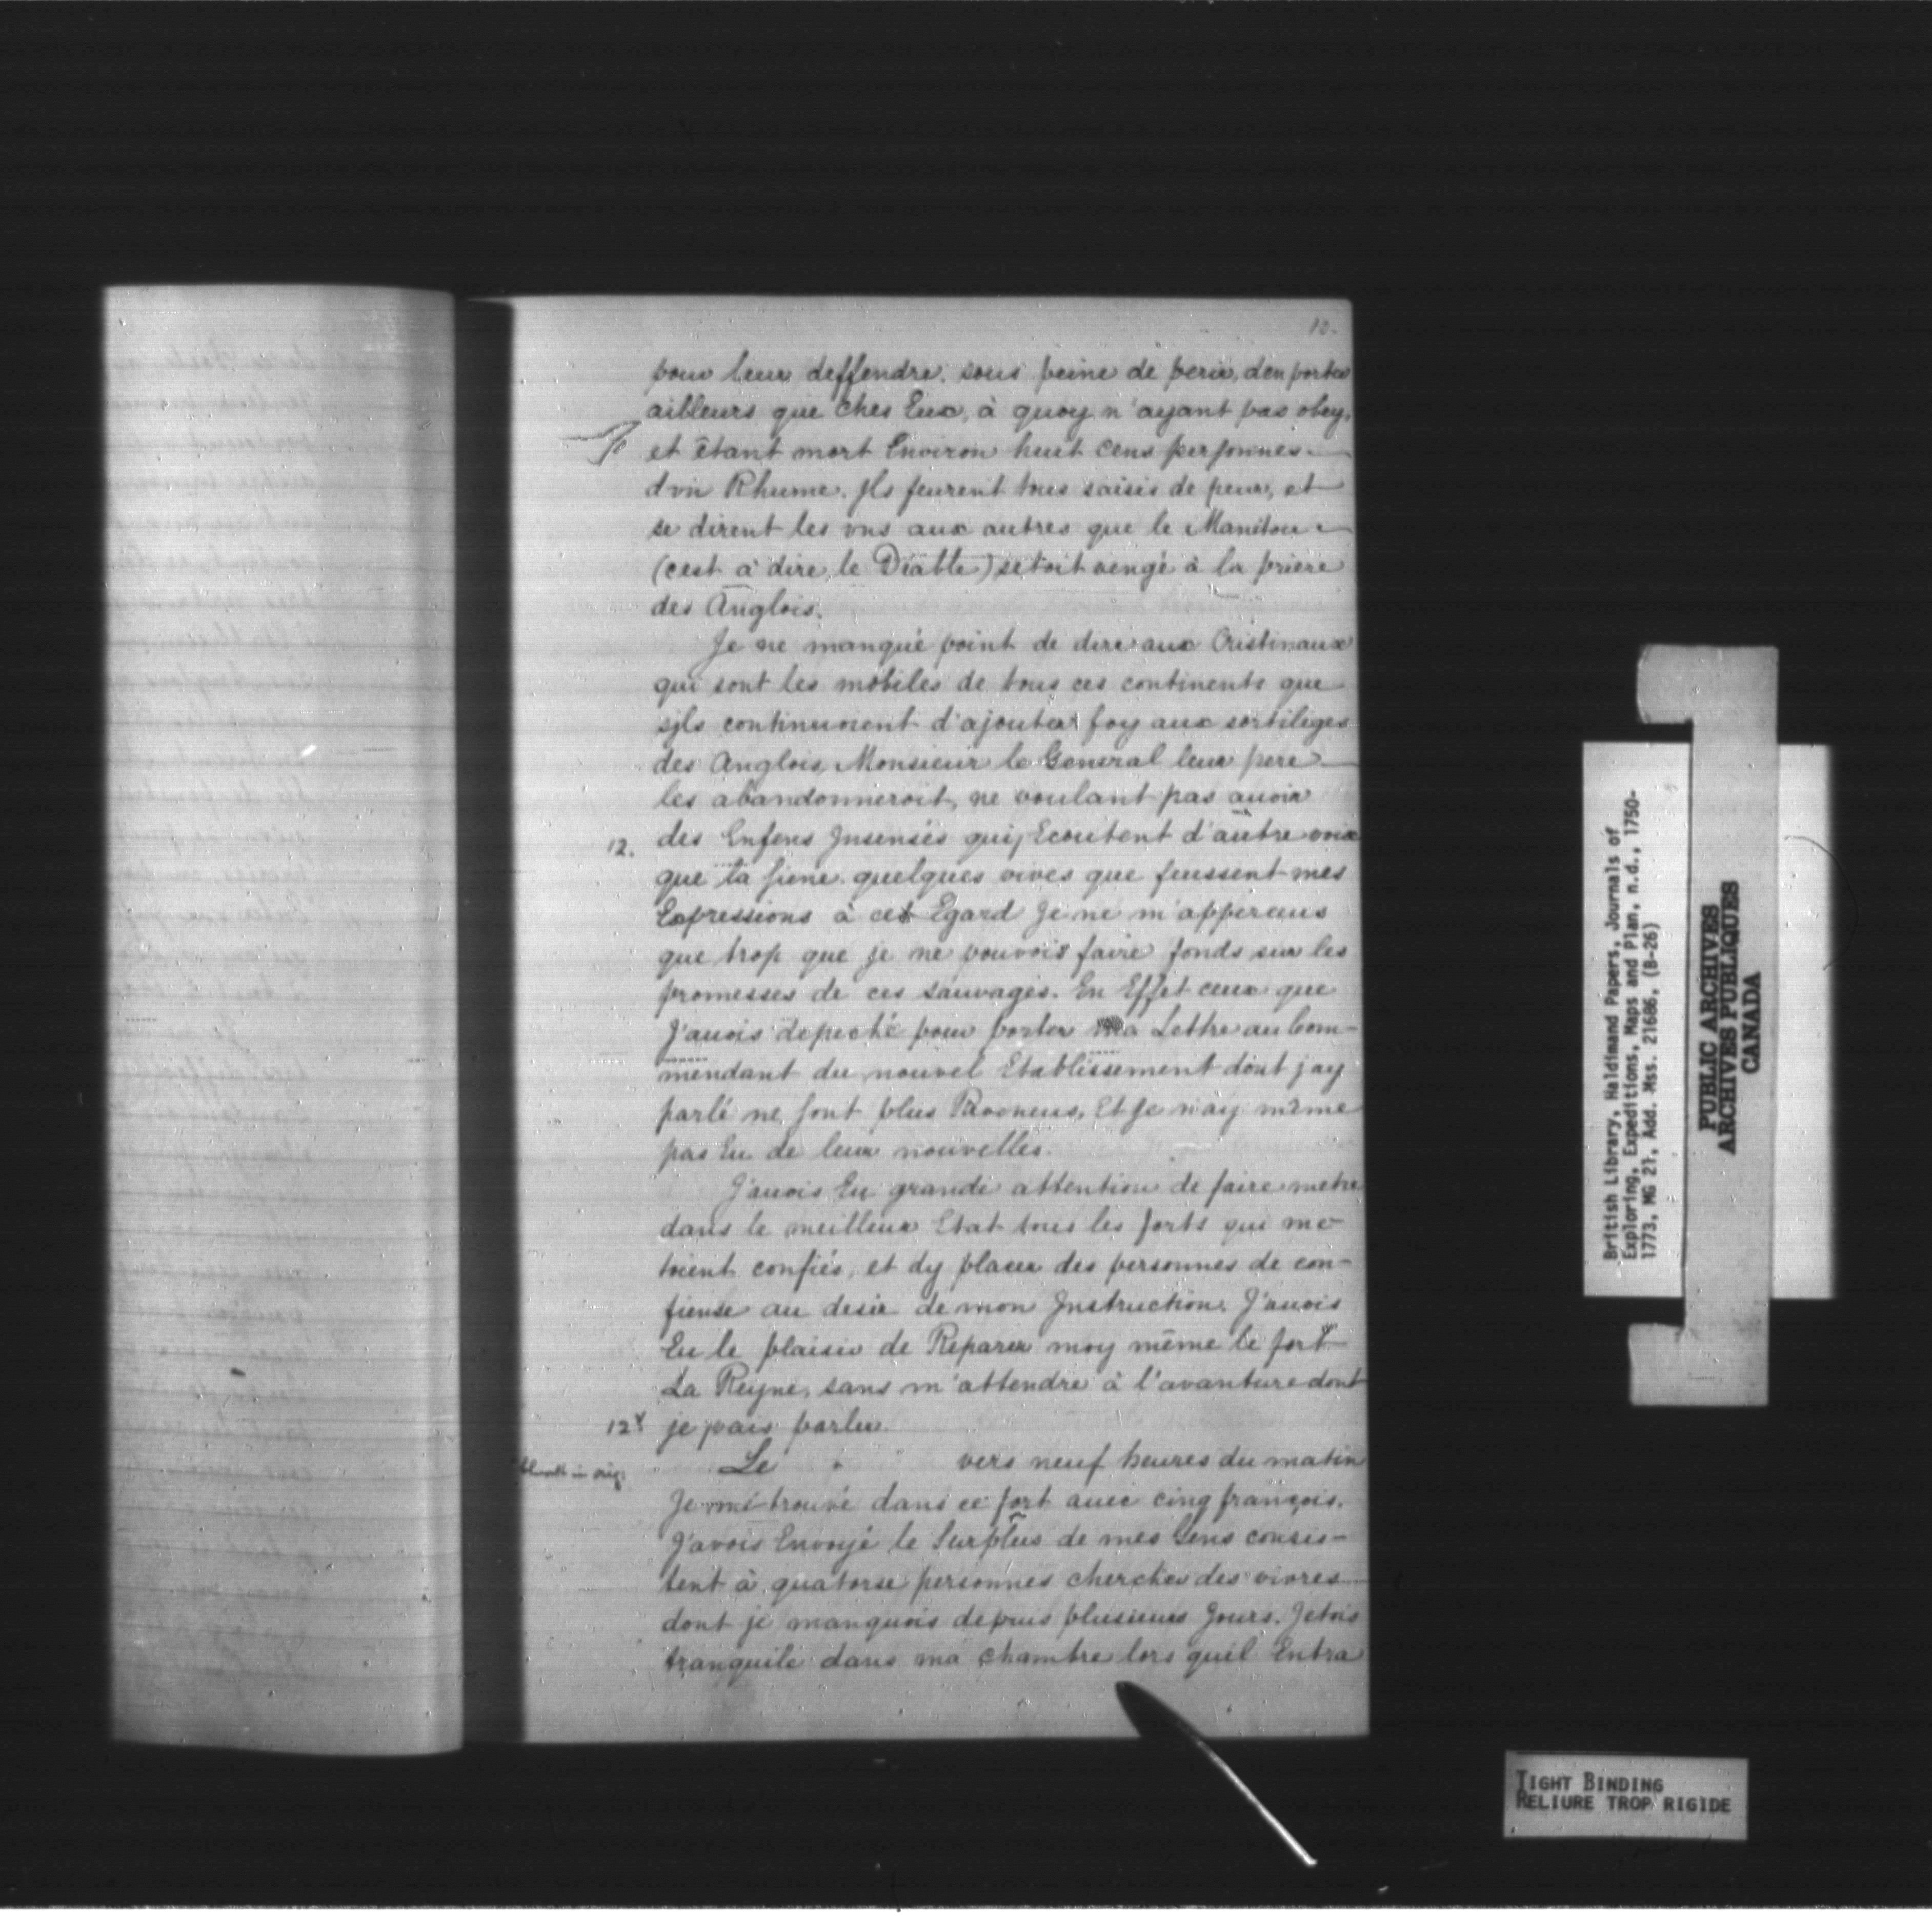 10.
pour leur deffendre. sous peine de perir, d'en porter
ailleurs que ches Eux, à quoy n'ayant pas obey,
et êtant mort Environ huit cens personnes
d'vn Rhume. Jls feurent tous saisis de peur, et
se dirent les vns aux autres que le Manitou
(cest à dire, le Diable) setoit vengé à la priere
des Anglois.
Je ne manqué point de dire aux Cristinaux
qui sont les mobiles de tous ces continents que
sjls continuoient d'ajouter foy aux sortiléges
des Anglois, Monsieur le General leur pere
les abandonneroit, ne voulant pas auoir
12. des Enfens Jnsensés qui Ecoutent d'autre voix
que la siene. quelques vives que feussent mes
Expressions à cet Egard Je ne m'apperceus
que trop que je ne pouvois faire fonds sur les
promesses de ces sauvages. En Effet ceux que
J'auois depeché pour porter ma Lettre au Com-
mendant du nouvel Etablissement dont jay
parlé ne sont plus Revenus, Et je n'ay même
pas Eu de leur nouvelles.
J'auois Eu grande attention de faire metre
dans le meilleur Etat tous les forts qui me-
toient confiés, et dy placer des personnes de con-
fiense au desir de mon Jnstruction. J'auois
Eu le plaisir de Reparer moy même le fort
La Reyne, sans m'attendre à l'avanture dont
12v je vais parler.
blank in orig. Le vers neuf heures du matin
Je me trouvé dans ce fort auec cinq françois.
J'avois Envoyé le Surplus de mes Gens consis-
tent à quatorse personnes chercher des vivres
dont je manquois depuis plusieurs Jours. Jetois
tranquile dans ma chambre lors quil Entra
British Library, Haldimand Papers, Journals of
Exploring, Expeditions, Maps and Plan, n.d., 1750-
1773, MG 21, Add. Mss. 21686, (B-26)
PUBLIC ARCHIVES
ARCHIVES PUBLIQUES
CANADA
TIGHT BINDING
RELIURE TROP RIGIDE